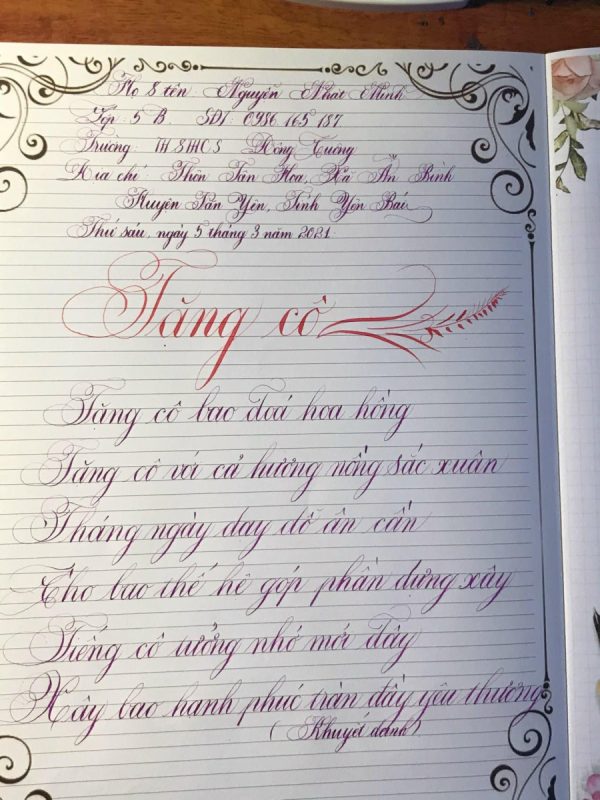 Họ & tên: Nguyễn Nhật Minh
Lớp: 5 B. SĐT: 0986 165 187
Trường: TH & THCS Đông Cuông
Địa chỉ: Thôn Tân Hoa, Xã An Bình
Huyện Văn Yên, Tỉnh Yên Bái
Thứ sáu, ngày 5 tháng 3 năm 2021
Tặng cô
Tặng cô bao đoá hoa hồng
Tặng cô với cả hương nồng sắc xuân
Tháng ngày dạy dỗ ân cần
Cho bao thế hệ góp phần dựng xây
Tiếng cô tưởng nhớ mới đây
Xây bao hạnh phúc tràn đầy yêu thương
(Khuyết danh)